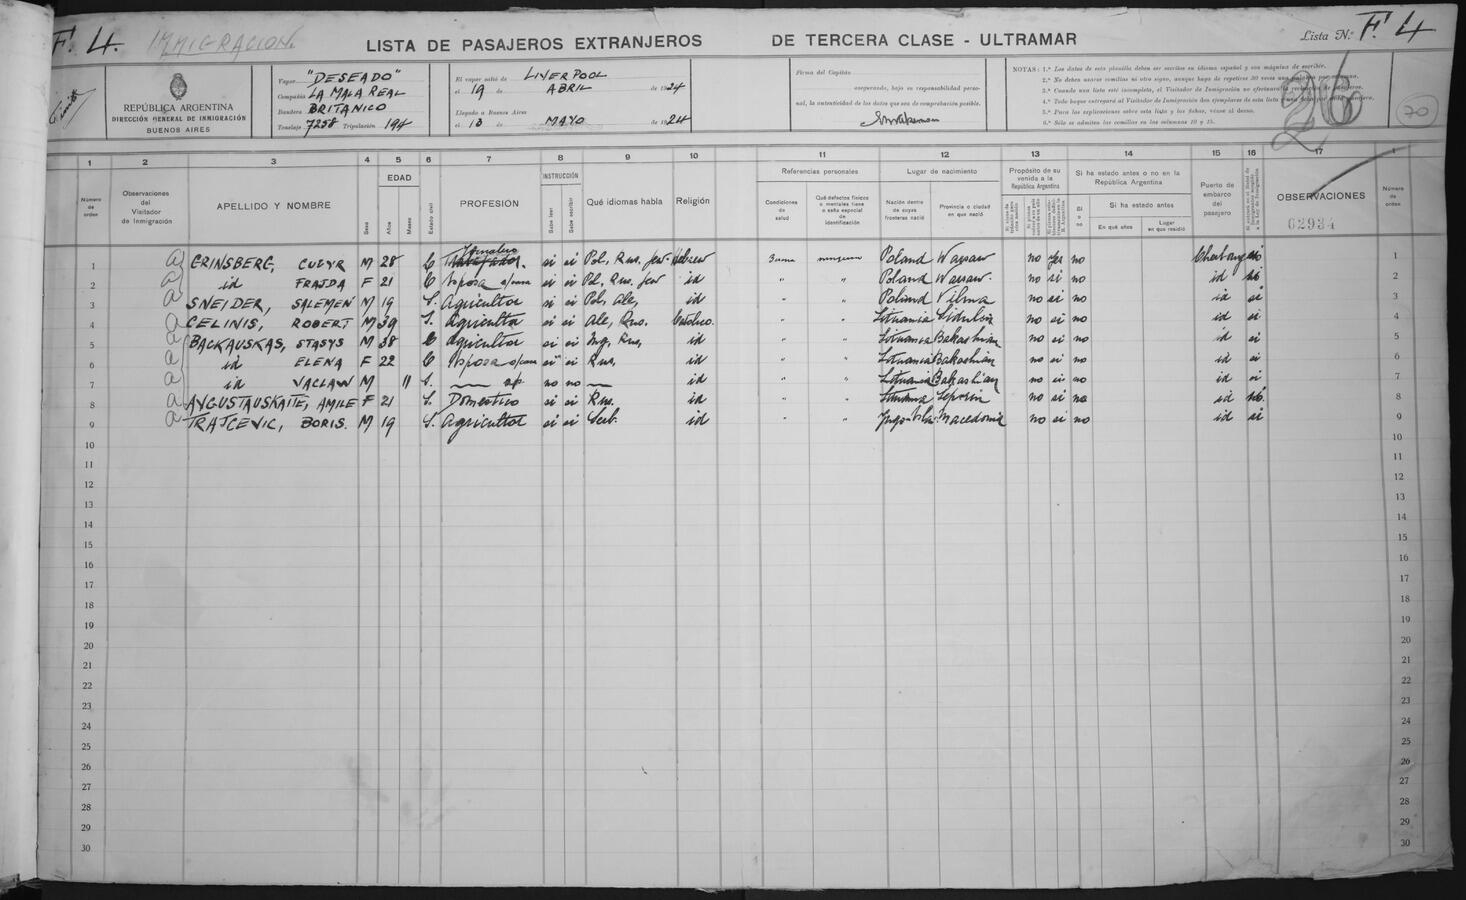 F. 4. INMIGRACION.
LISTA DE PASAJEROS EXTRANJEROS DE TERCERA CLASE - ULTRAMAR
Lista N.º F. 4
REPÚBLICA ARGENTINA
DIRECCIÓN GENERAL DE INMIGRACIÓN
BUENOS AIRES
Vapor "DESEADO"
Compañía LA MALA REAL
Bandera BRITANICO
Tonelaje 7258 Tripulación 194
El vapor salió de LIVERPOOL
el 19 de ABRIL de 1924
Llegado a Buenos Aires
el 13 de MAYO de 1924
Firma del Capitán
asegurando, bajo su responsabilidad personal, la autenticidad de los datos que sea de comprobación posible.
NOTAS: 1.ª Los datos de esta planilla deben ser escritos en idioma español y con máquina de escribir.
2.ª No deben usarse comillas ni otro signo, aunque haga de repetirse 30 veces una palabra por
3.ª Cuando una lista esté incompleta, el Visitador de Inmigración no efectuará la recepción de pasajeros.
4.ª Todo buque entregará al Visitador de Inmigración dos ejemplares de esta lista
5.ª Para las explicaciones sobre esta lista y las fechas, véase al dorso.
6.ª Sólo se admiten las comillas en las columnas 10 y 15.
26
70
1 2 3 4 5 6 7 8 9 10 11 12 13 14 15 16 17 1
Número de orden
Observaciones del Visitador de Inmigración
APELLIDO Y NOMBRE
Sexo
EDAD
Años
Meses
Estado civil
PROFESION
INSTRUCCIÓN
Sabe leer
Sabe escribir
Qué idiomas habla
Religión
Referencias personales
Condiciones de salud
Qué defectos físicos o mentales tiene o seña especial de identificación
Lugar de nacimiento
Nación dentro de cuyas fronteras nació
Provincia o ciudad en que nació
Propósito de su venida a la República Argentina
Si ha estado antes o no en la República Argentina
Sí o no
Si ha estado antes
En qué años
Lugar en que residió
Puerto de embarco del pasajero
OBSERVACIONES
02934
Número de orden
1 a GRINSBERG, CUDYR M 28 C Jornalero. si si Pol, Rus. Jew Hebreo Buena ninguna Poland Warsaw no yes no si 1
2 a id FRAJDA F 21 C Esposa s/p si si Pol, Rus, Jew id " " Poland Warsaw no si no id si 2
3 a SNEIDER, SALEMEN M 19 S. Agricultor si si Pol, Ale, id " " Poland Vilma no si no id si 3
4 a CELINIS, ROBERT M 39 S. Agricultor si si Ale, Rus. Catolico. " " Lituania no si no id si 4
5 a BACKAUSKAS, STASYS M 38 C Agricultor si si Ing, Rus, id " " Lituania no si no id si 5
6 a id ELENA F 22 C Esposa si si Rus, id " " Lituania no si no id si 6
7 a id VACLAW M 11 S. s/p no no id " " Lituania no si no id si 7
8 a AVGUSTAUSKAITE, AMILE F 21 S. Domestico si si Rus. id " " Lituania no si no id 8
9 a TRAJCEVIC, BORIS. M 19 S. Agricultor si si Serb. id " " Macedonia no si no id si 9
10 10
11 11
12 12
13 13
14 14
15 15
16 16
17 17
18 18
19 19
20 20
21 21
22 22
23 23
24 24
25 25
26 26
27 27
28 28
29 29
30 30